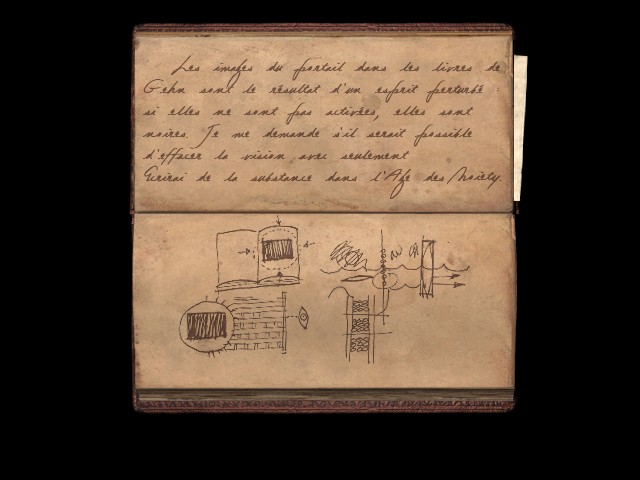 Les images du portail dans les livres de
Gehn sont le résultat d'un esprit perturbé :
si elles ne sont pas activées, elles sont
noires. Je me demande s'il serait possible
d'effacer la vision avec seulement
Ecrirai de la substance dans l'Age des Moiety.